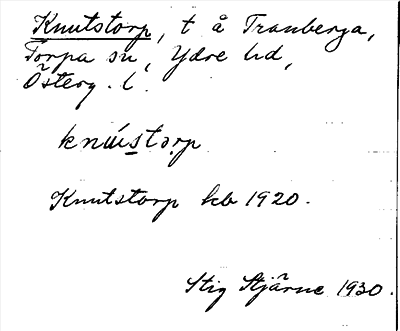 Knutstorp, t å Tranberga,
Torpa sn, Ydre hd,
Österg. l.
knústorp
Knutstorp kb 1920.
Stig Stjärne 1930.